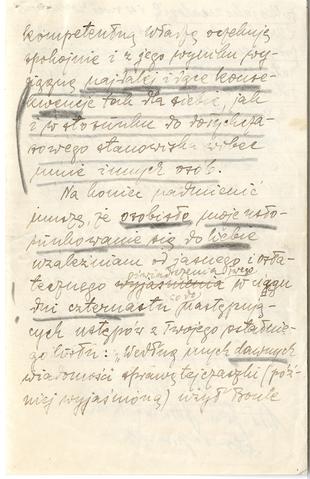 kompetentną władzę oczekuję
spokojnie i z jego wyniku wy-
ciągnę najdalej idące konse-
kwencje tak dla siebie, jak
i w stosunku do dotychcza-
sowego stanowiska wobec
mnie innych osób.
Na koniec nadmienić
muszę, że osobisto moje usto-
sunkowanie się do Ciebie
uzależniam od jasnego i osta-
tecznego wyjaśnienia w ciągu
oświadczenia Twego
dni czternastu co do następują-
cych ustępów z Twojego ostatnie-
go listu: „Według mych dawnych
wiadomości sprawę tej czaszki (póź-
niej wyjaśnioną) użył